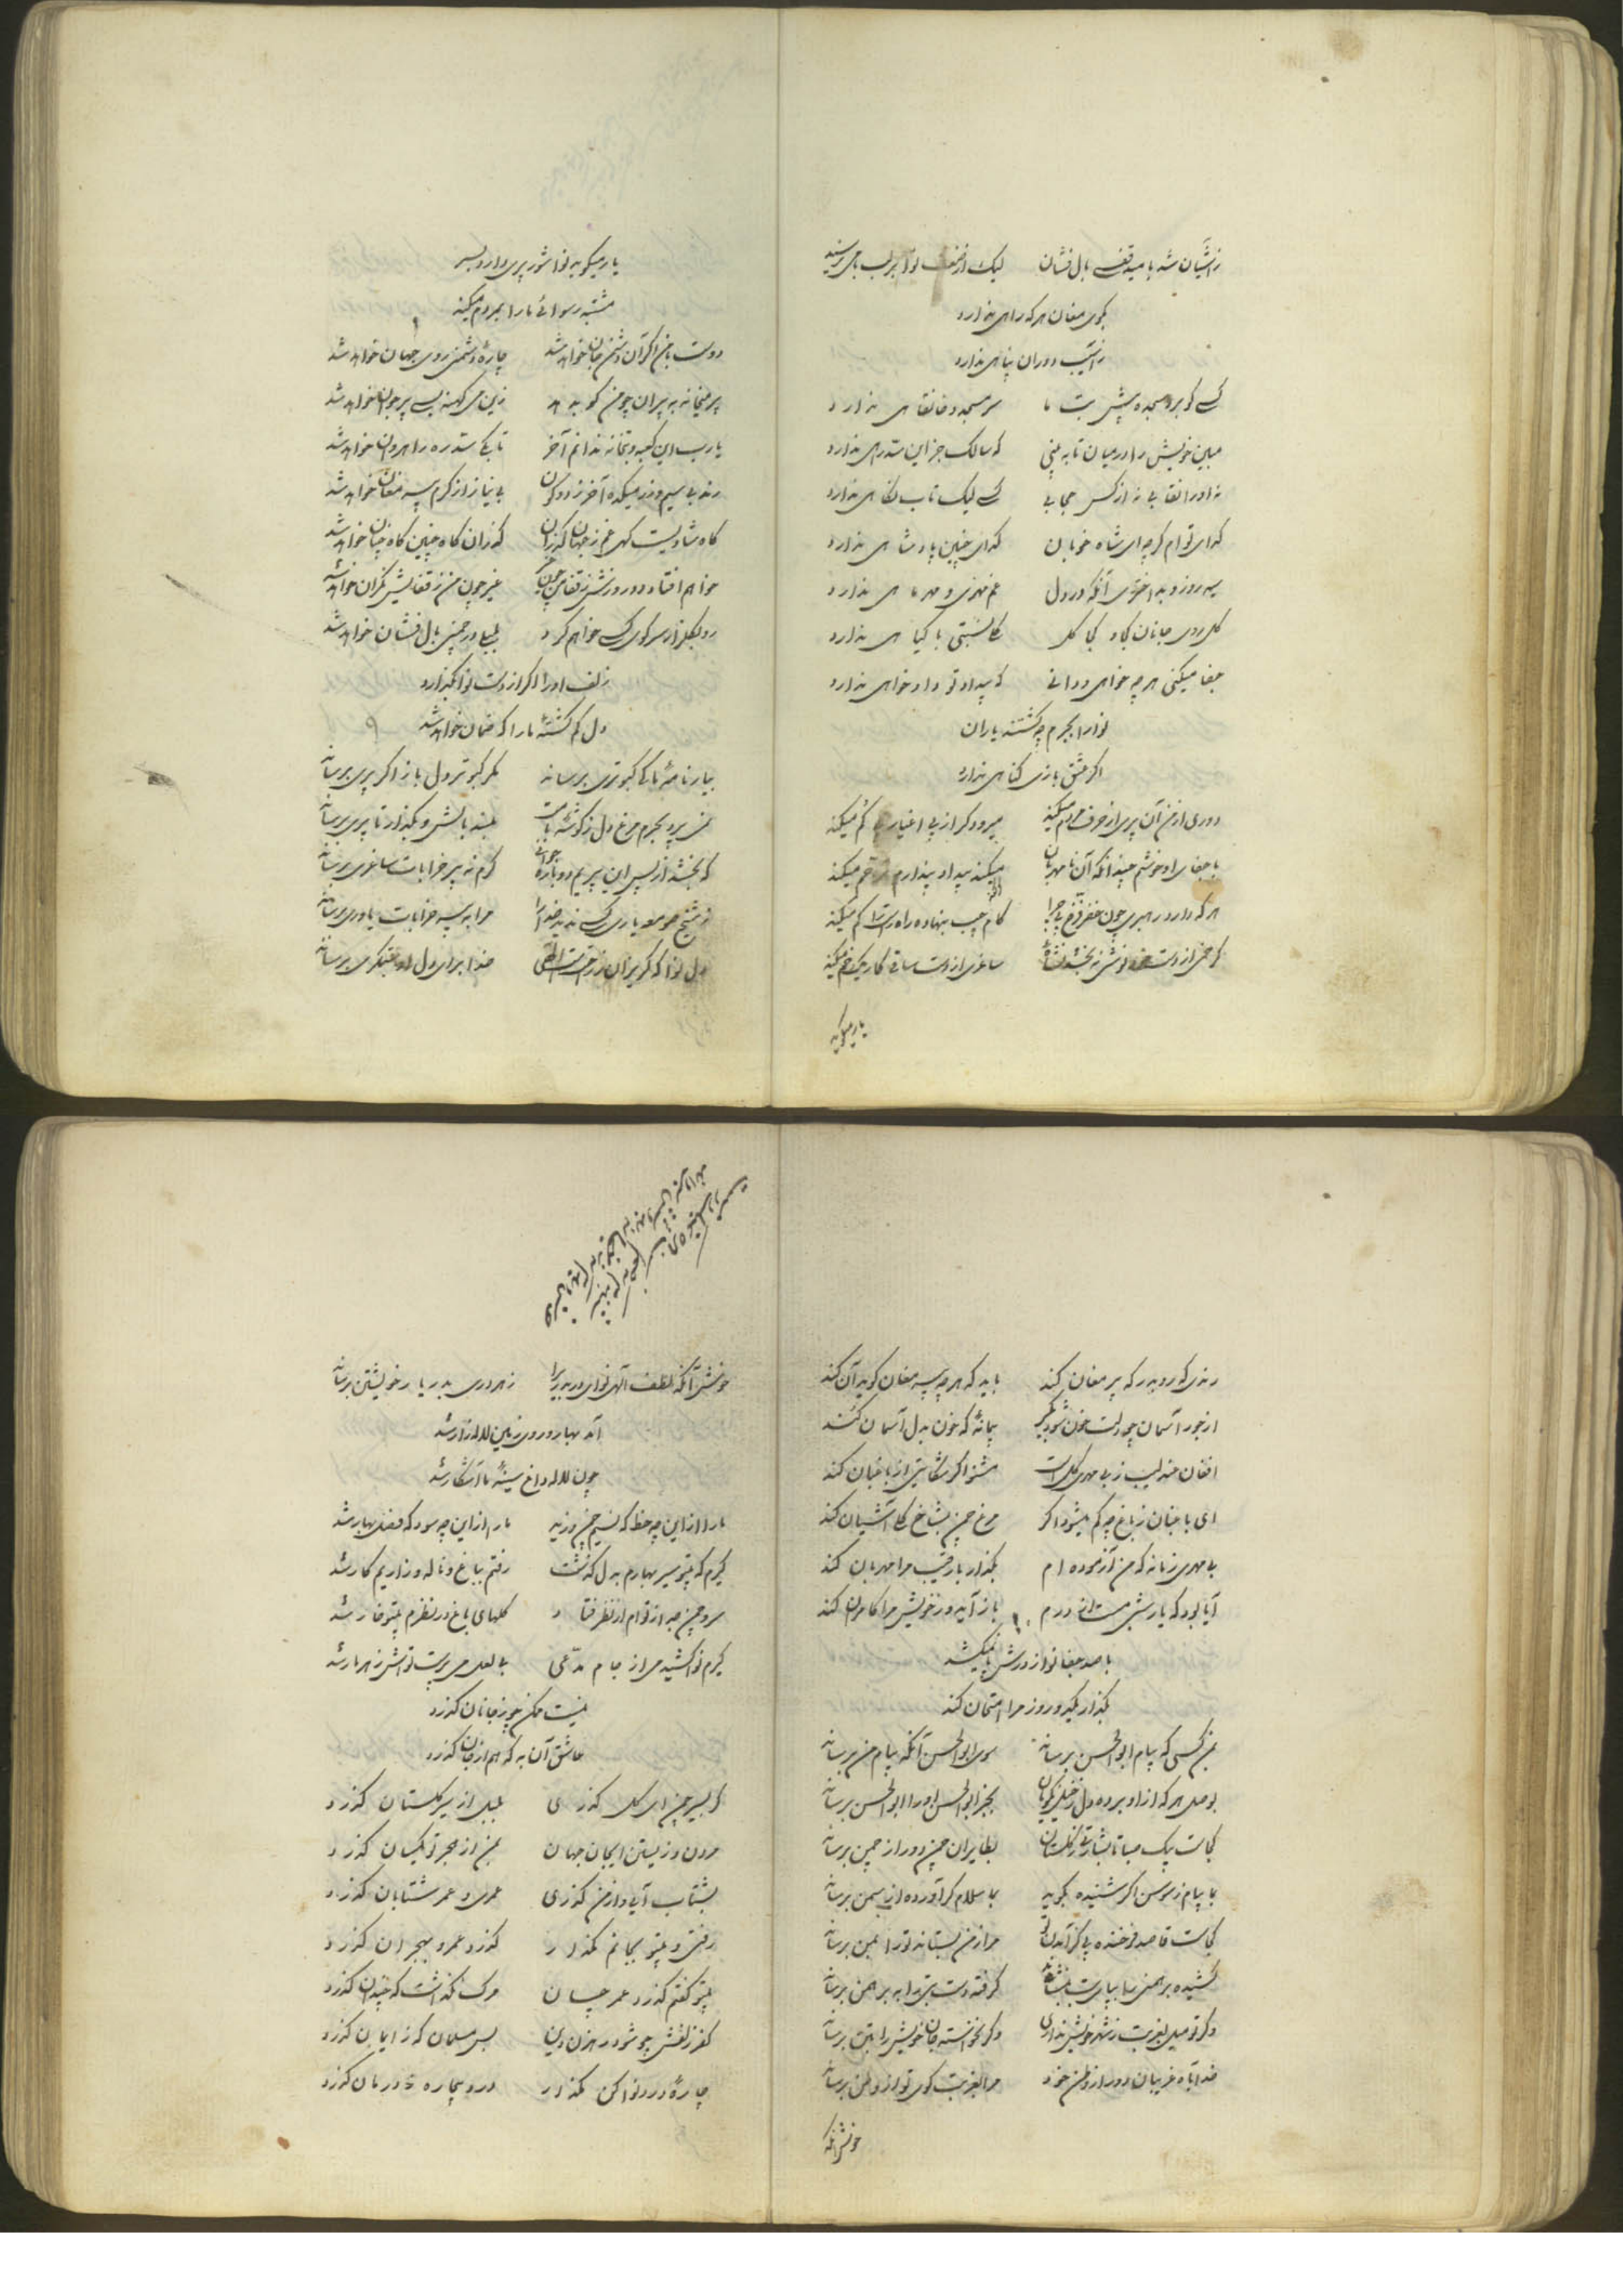 ز آشیان شد با میدقفس بال فشان لیک از ضعف نوا بر لب بامی نرسید
بکوی مغان هر که راهی ندارد
ز آسیب دوران پناهی ندارد
کسی کو برد سجده پیش بت ما سر مسجد و خانقاهی ندارد
مبین خویش را در میان تا به بینی که سالک جز این سد راهی ندارد
نه او را نقابی نه از کس حجابی کسی لیک تاب نگاهی ندارد
گدای توام گرچه ای شاه خوبان گدای چنین پادشاهی ندارد
سیه روز و بد اختری آنکه در دل غم مهوشی و مهر ماهی ندارد
گل روی جانان کجا و کجا گل گل نسبتی با گیاهی ندارد
جفا میکنی هرچه خواهی و دانی که بیداد تو دادخواهی ندارد
نوا را بجرم چه کشتند یاران
اگر عشق بازی گناهی ندارد
دوری از من آن پری از حرف مردم میکند میرود کز پی اغیار پی گم میکند
با جفای او خوشم چندانکه آن نامهربان میکند بیداد پندارم ترحم میکند
هر که دارد رهبری چون خضر فرخ پی چرا گام چپ بنهاده راه راست را گم میکند
گر خمی از دست خود نوشی نبخشد نشئه ساغری از دست ساقی کار یک خم میکند
یار میگوید
یار میگوید نوا شور پری دارد بسر
مشتبه رسوائی ما را بمردم میکند
دوست با من اگر آن دشمن جان خواهد شد چارهٔ دشمنی روی جهان خواهد شد
پیر میخانه به پیران چو من گو بدهد زین می کهنه بسی پیر جوان خواهد شد
یارب این کعبه و بتخانه ندانم آخر تا بکی سد ره راهروان خواهد شد
رند بی سیم و زر میکده آخر ز دو کون بی نیاز از کرم پیر مغان خواهد شد
گاه شادیست گهی غم ز جهان گذران گذران گاه چنین گاه چنان خواهد شد
خواهم افتاد دو روزش ز قفا من چون غیر چون من ز قفایش نگران خواهد شد
رو بگلزار سر کوی کسی خواهم کرد بلبل در چمنی بال فشان خواهد شد
زلف او را اگر از دست نوا نگذارد
دل گم گشتهٔ ما را که ضمان خواهد شد
بیار نامهٔ ما کی کبوتری برساند مگر کبوتر دل باز اگر پری برساند
نمی پرد بجرم مرغ دل ز گوشهٔ بامت ببند بالش و بگذار تا پری برساند
که بخشد از پس این پیریم دوباره جوانی کرم نه پیر خرابات ساغری برساند
ز شیخ صومعه یاری کسی ندید خدا را مرا به پیر خرابات یاوری برساند
دل نوا که گریزان ز زحمت است الهی خدا برای دل او ستمگری برساند
رندی که رو بدرگه پیر مغان کند باید که هرچه پیر مغان گوید آن کند
از جور آسمان چو دلت خون شود بگیر پیمانهٔ که خون بدل آسمان کند
افغان عندلیب ز بی مهری گل است مشنو اگر شکایتی از باغبان کند
ای باغبان ز باغ چه کم میشود اگر مرغ چمن بشاخ گلی آشیان کند
بی مهری زمانه که من آزموده ام مگذار با رقیب مرا مهربان کند
آیا بود که یار شبی مست از درم باز آید و ز خویش مرا کامران کند
با صد جفا نوا ز درش پا نمیکشد
بگذار یکدو روز مرا امتحان کند
بمن کسی که پیام ابوالحسن برساند سوی ابوالحسن آنکه پیام من برساند
بوصل هر که از او برده دل ز خیل نکویان بجز ابوالحسن او را ابوالحسن برساند
کجاست پیک صبا تا بشارتی ز گلستان بطایران چمن دور از چمن برساند
بما پیام ز سوسن اگر شنیده بگوید بما سلام گر آورده از سمن برساند
کجاست قاصد فرخنده پی گز آمدن تو مرا ز من بستاند تو را بمن برساند
کشیده برهمنی پا بپای بت بنشانده گرفته دست بتی را به برهمن برساند
وگر تو میل بغربت ز شهر خویش نداری وگر نخواسته جان خویش را بتن برساند
خدا بآه غریبان دور از وطن خود مرا بغربت کوی تو از وطن برساند
خوش آنکه
خوش آنکه لطف الهی نوای دربدری را ز هر دری بدر یار خویشتن برساند
آمد بهار و روی زمین لاله زار شد
چون لاله داغ سینهٔ ما آشکار شد
ما را از این چه حظ که نسیم چمن وزید ما را از این چه سود که فصل بهار شد
گیرم که بیتو سیر بهارم بدل گذشت رفتم بباغ و ناله و زاریم کار شد
سرو چمن جدا ز توام از نظر فتاد گلهای باغ در نظرم بیتو خار شد
گیرم نوا کشید می از جام مدعی بی لعل می پرست تو اش زهر مار شد
نیست ممکن بمن از جانان گذرد
عاشق آن به که هم از جان گذرد
گر بسیر چمن ای گل گذری بلبل از سیر گلستان گذرد
مردن و زیستن ای جان جهان بمن از هجر تو یکسان گذرد
بشتاب آئی و از من گذری عمری و عمر شتابان گذرد
رفتی و بیتو بجانم گذرد گذرد عمر و بهجران گذرد
بیتو گفتم گذرد عمر چسان مرگ نگذاشت که چندان گذرد
کفر زلفش چو شود رهزن دین بس مسلمان که ز ایمان گذرد
چارهٔ درد نوا کن مگذار درد بیچاره ز درمان گذرد